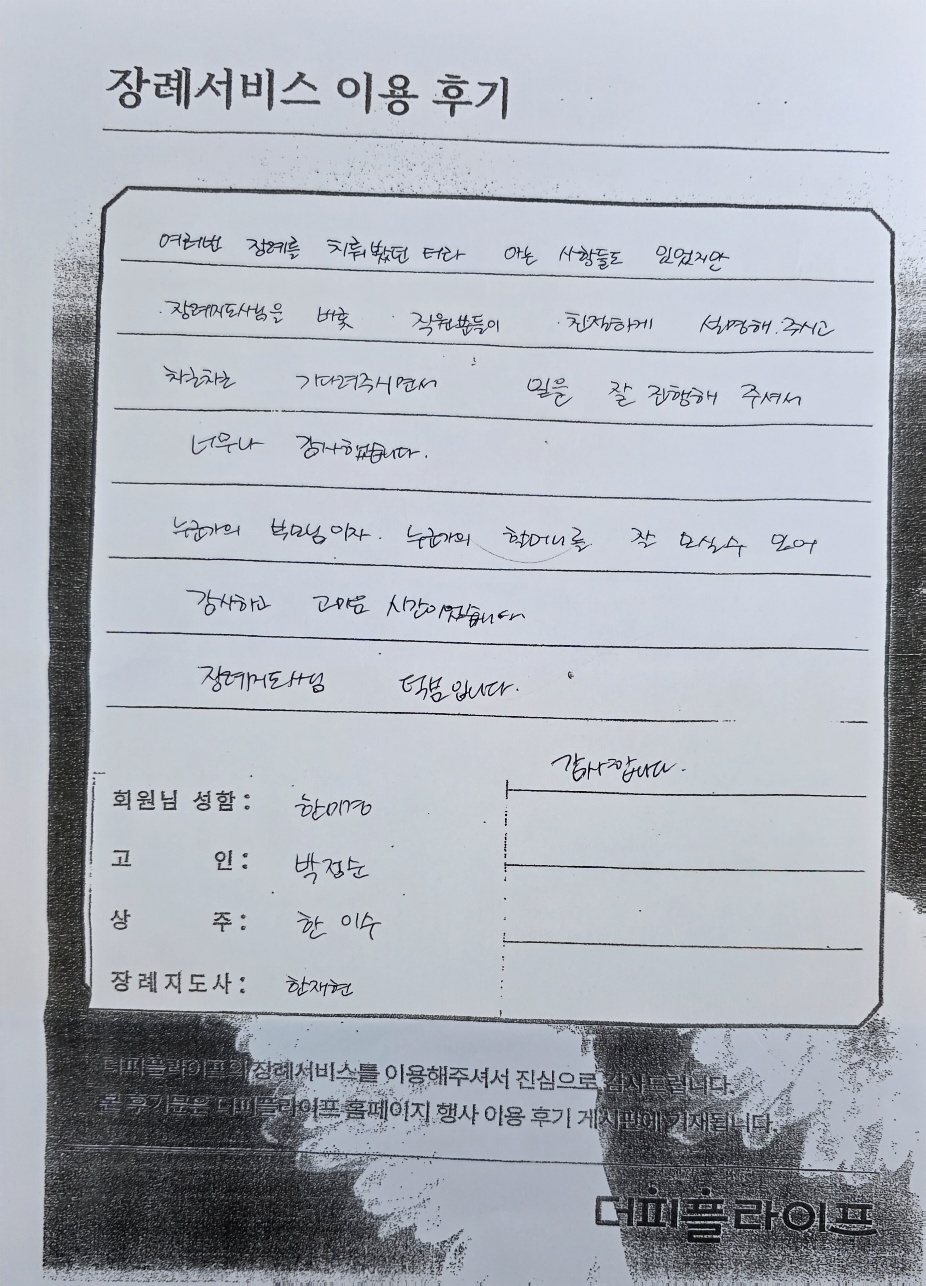 장례서비스 이용 후기
여러번 장례를 치뤄봤던 터라 아는 사항들도 있었지만
장례지도사님을 비롯 직원분들이 친절하게 설명해 주시고
차근차근 기다려주시면서 일을 잘 진행해 주셔서
너무나 감사했습니다.
누군가의 부모님이자. 누군가의 할머니를 잘 모실수 있어
감사하고 고마운 시간이었습니다
장례지도사님 덕분입니다.
감사합니다.
회원님 성함: 한미경
고 인: 박정순
상 주: 한이수
장례지도사: 한재현
더피플라이프의 장례서비스를 이용해주셔서 진심으로 감사드립니다.
본 후기문은 더피플라이프 홈페이지 행사 이용 후기 게시판에 기재됩니다.
더피플라이프